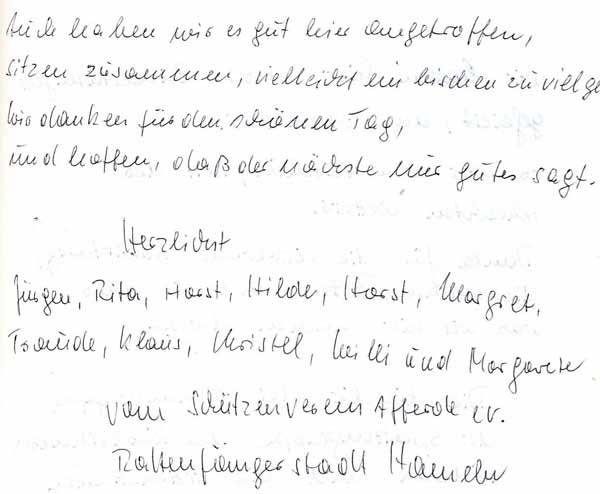 Auch haben wir es gut hier angetroffen,
sitzen zusammen, vielleicht ein bischen zu viel ge
Wir danken für den schönen Tag,
und hoffen, daß der nächste nur gutes sagt.
Herzlichst
Jürgen, Rita, Horst, Hilde, Horst, Margret,
Traude, Klaus, Christel, Willi und Margarete
vom Schützenverein Afferde e.V.
Rattenfängerstadt Hameln